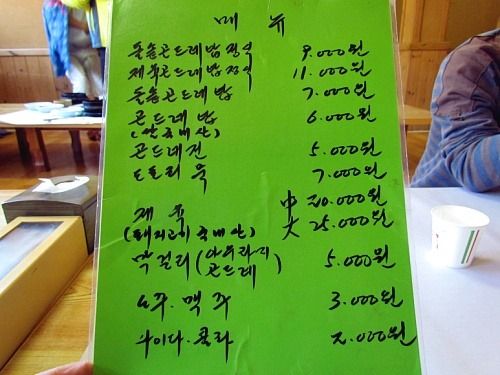 메뉴
돌솥곤드레밥정식 9.000원
제육곤드레밥정식 11.000원
돌솥곤드레밥 7.000원
곤드레밥 6.000원
(쌀국내산)
곤드레전 5.000원
도토리묵 7.000원
제육 中 20.000원
(돼지고기국내산) 大 25.000원
막걸리(아우라지 곤드레) 5.000원
소주.맥주 3.000원
사이다.콜라 2.000원